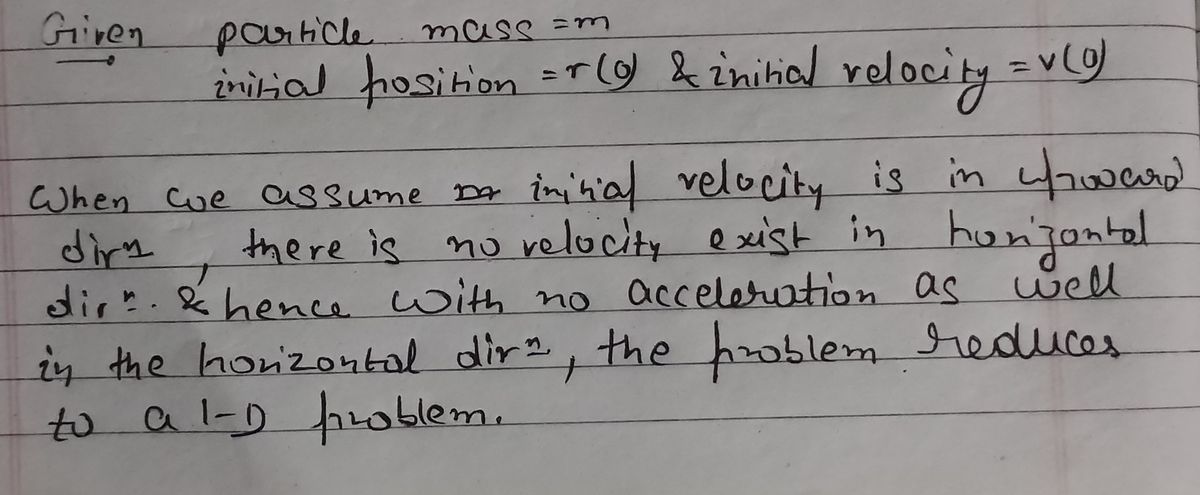 Given particle mass = m
initial position = r(0) & initial velocity = v(0)
When we assume initial velocity is in upward
dirn, there is no velocity exist in horizontal
dirn. & hence with no acceleration as well
in the horizontal dirn, the problem reduces
to a 1-D problem.